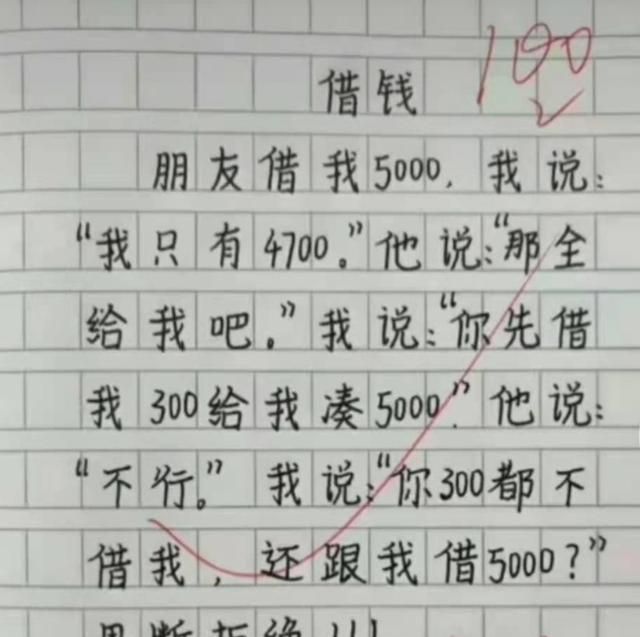 100
借钱
朋友借我5000,我说:
“我只有4700。”他说:“那全
给我吧。”我说:“你先借
我300给我凑5000”他说:
“不行。”我说:“你300都不
借我,还跟我借5000?”
果断拒绝!!!